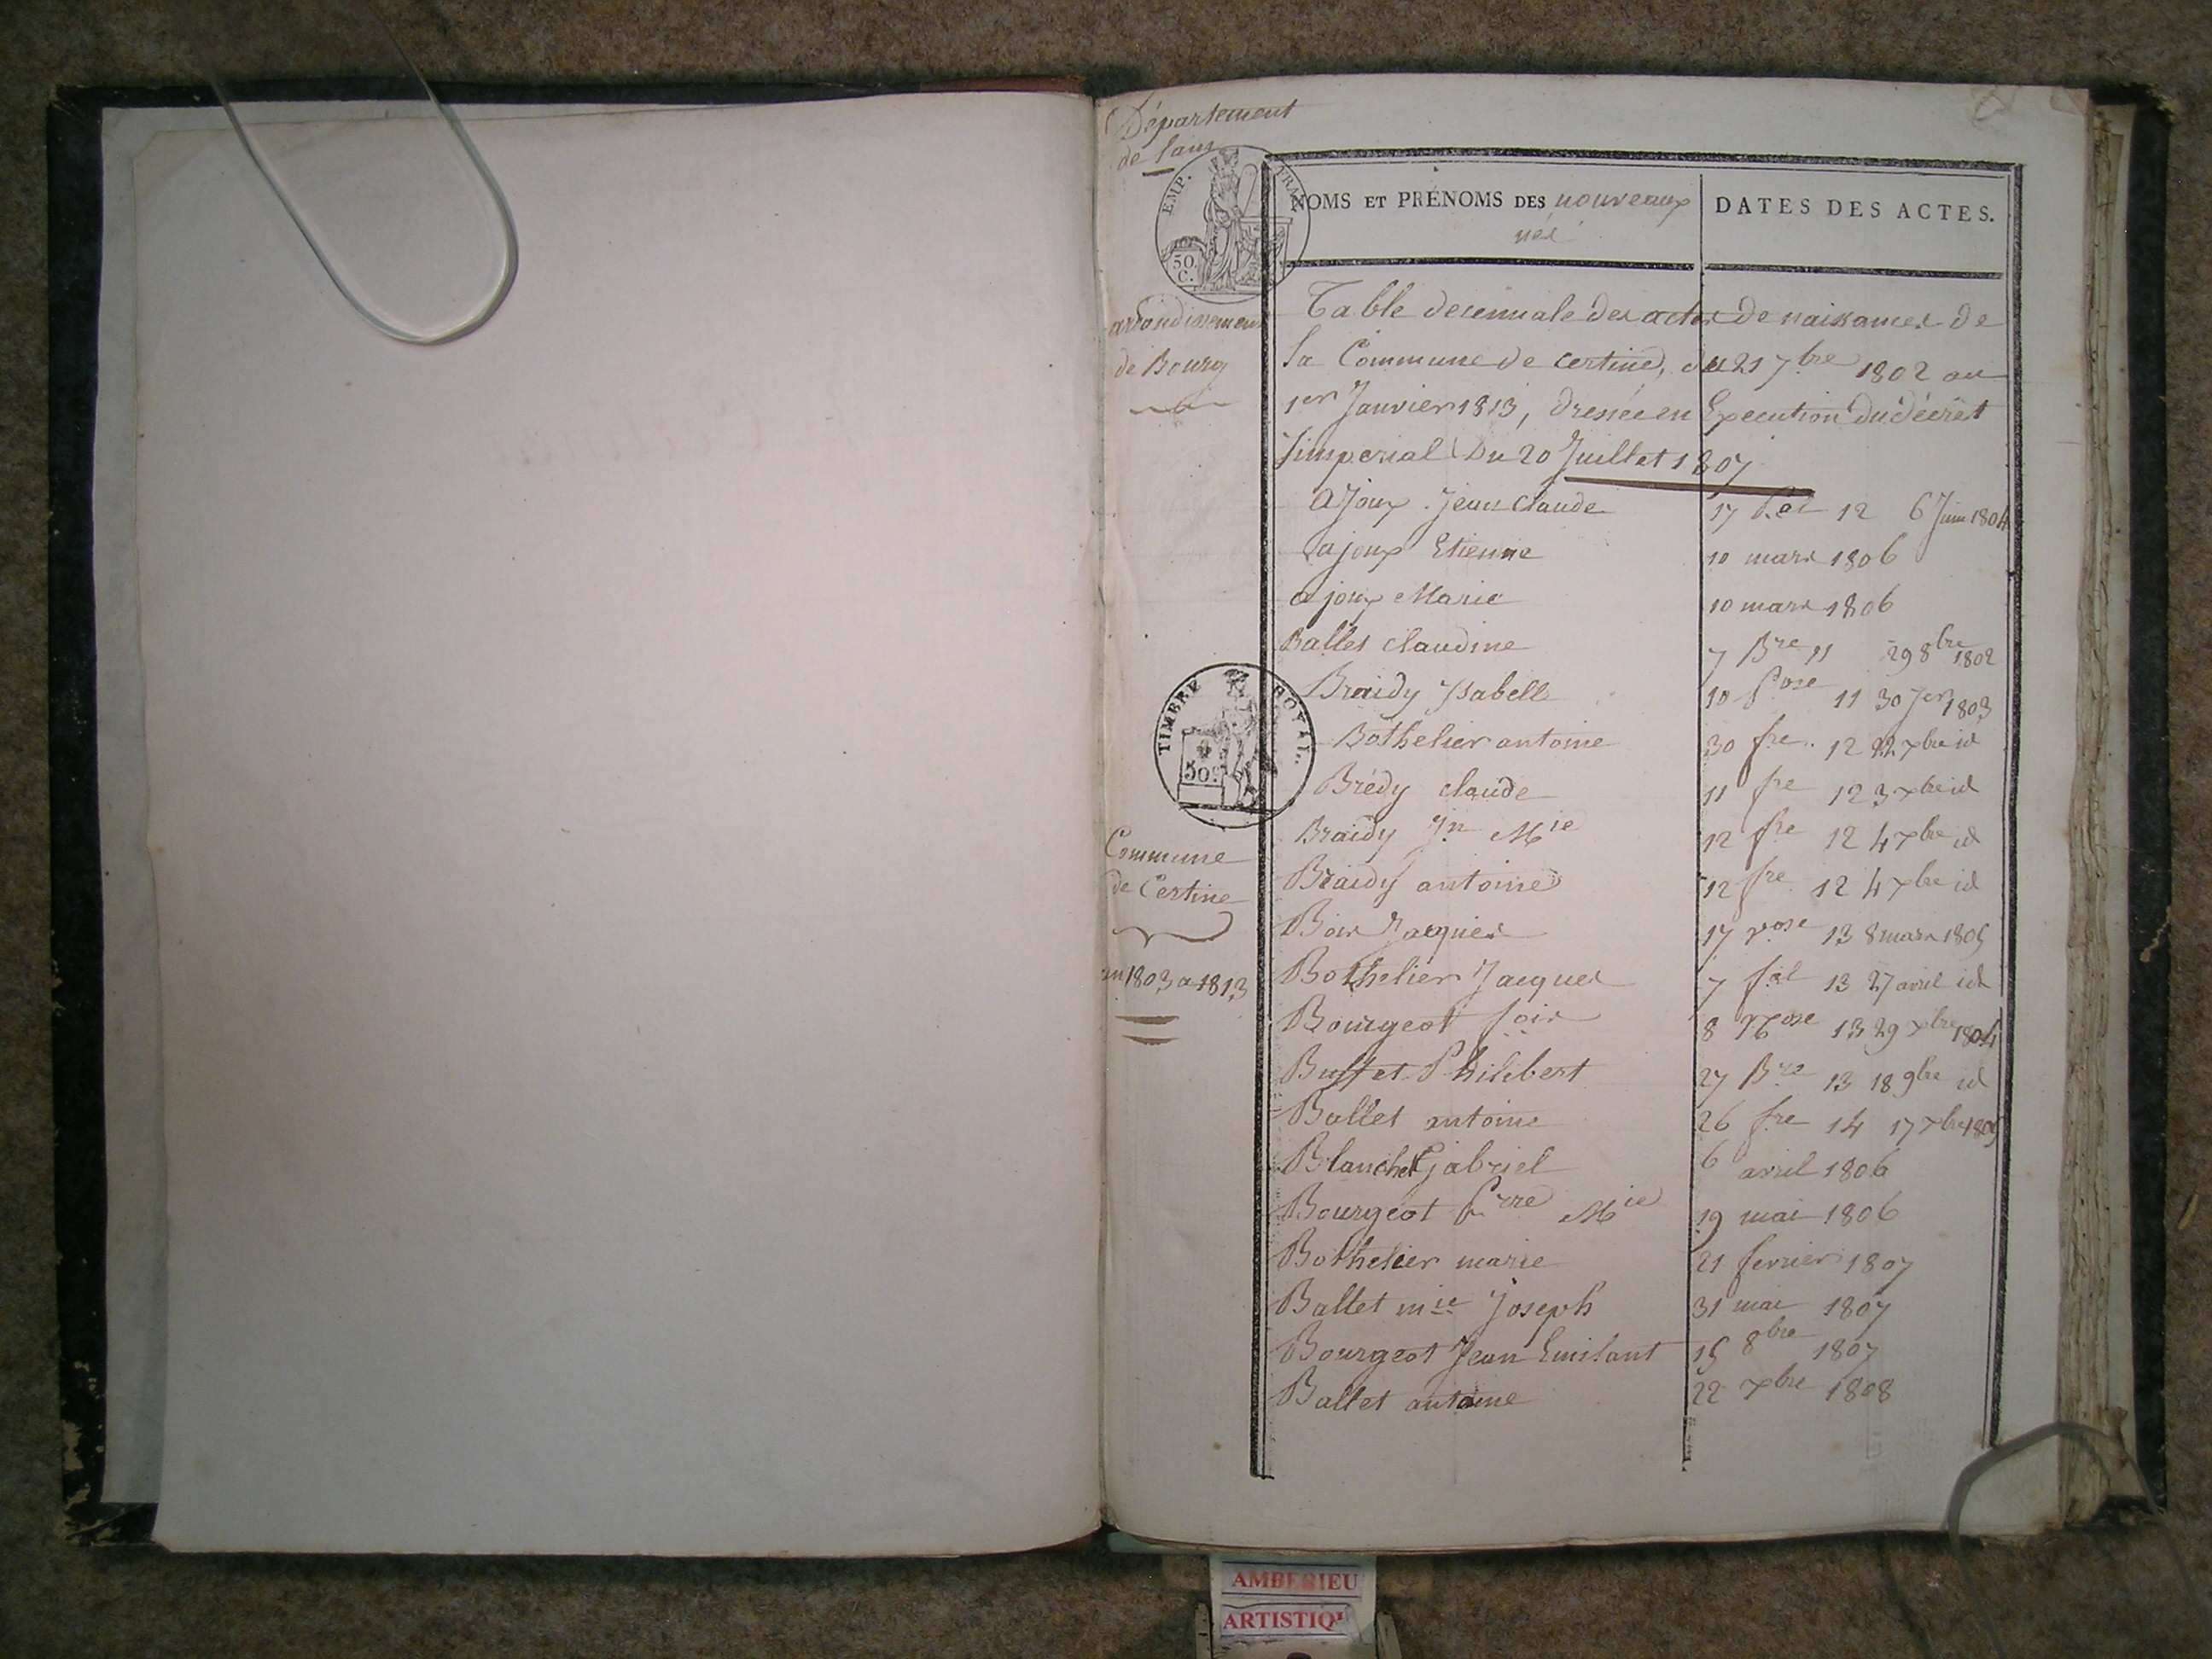 Département
de l'ain
EMP. FRAN
50.
C.
arrondissement
de Bourg
TIMBRE ROYAL.
50c
Commune
de Certine
an 1803 a 1813
NOMS ET PRÉNOMS DES nouveaux
nés
DATES DES ACTES.
Table decennale des actes de naissances de
la Commune de Certine, du 21 7bre 1802 au
1er Janvier 1813, dressée en Execution du décret
impérial Du 20 Juillet 1807
ajoux Jean Claude 17 Pal 12 6 Juin 1804
ajoux Etienne 10 mars 1806
ajoux Marie 10 mars 1806
Ballet Claudine 7 Bre 11 29 8bre 1802
Braidy Isabelle 10 Pose 11 30 Jer 1803
Bothelier antoine 30 fre 12 22 xbre id
Brédy claude 11 fre 12 3 xbre id
Braidy Jn Mie 12 fre 12 4 xbre id
Braidy antoine 12 fre 12 4 xbre id
Jacques 17 vose 13 8 mars 1805
Bothelier Jacques 7 fal 13 27 avril id
Bourgeot 8 Nose 13 29 xbre 1804
Buffet Philibert 27 Bre 13 18 9bre id
Ballet antoine 26 fre 14 17 xbre 1805
Blanchet Gabriel 6 avril 1806
Bourgeot Prre Mie 19 mai 1806
Bothelier marie 21 fevrier 1807
Ballet mie Joseph 31 mai 1807
Bourgeot Jean Emilant 15 8bre 1807
Ballet antoine 22 xbre 1808
AMBERIEU
ARTISTIQU